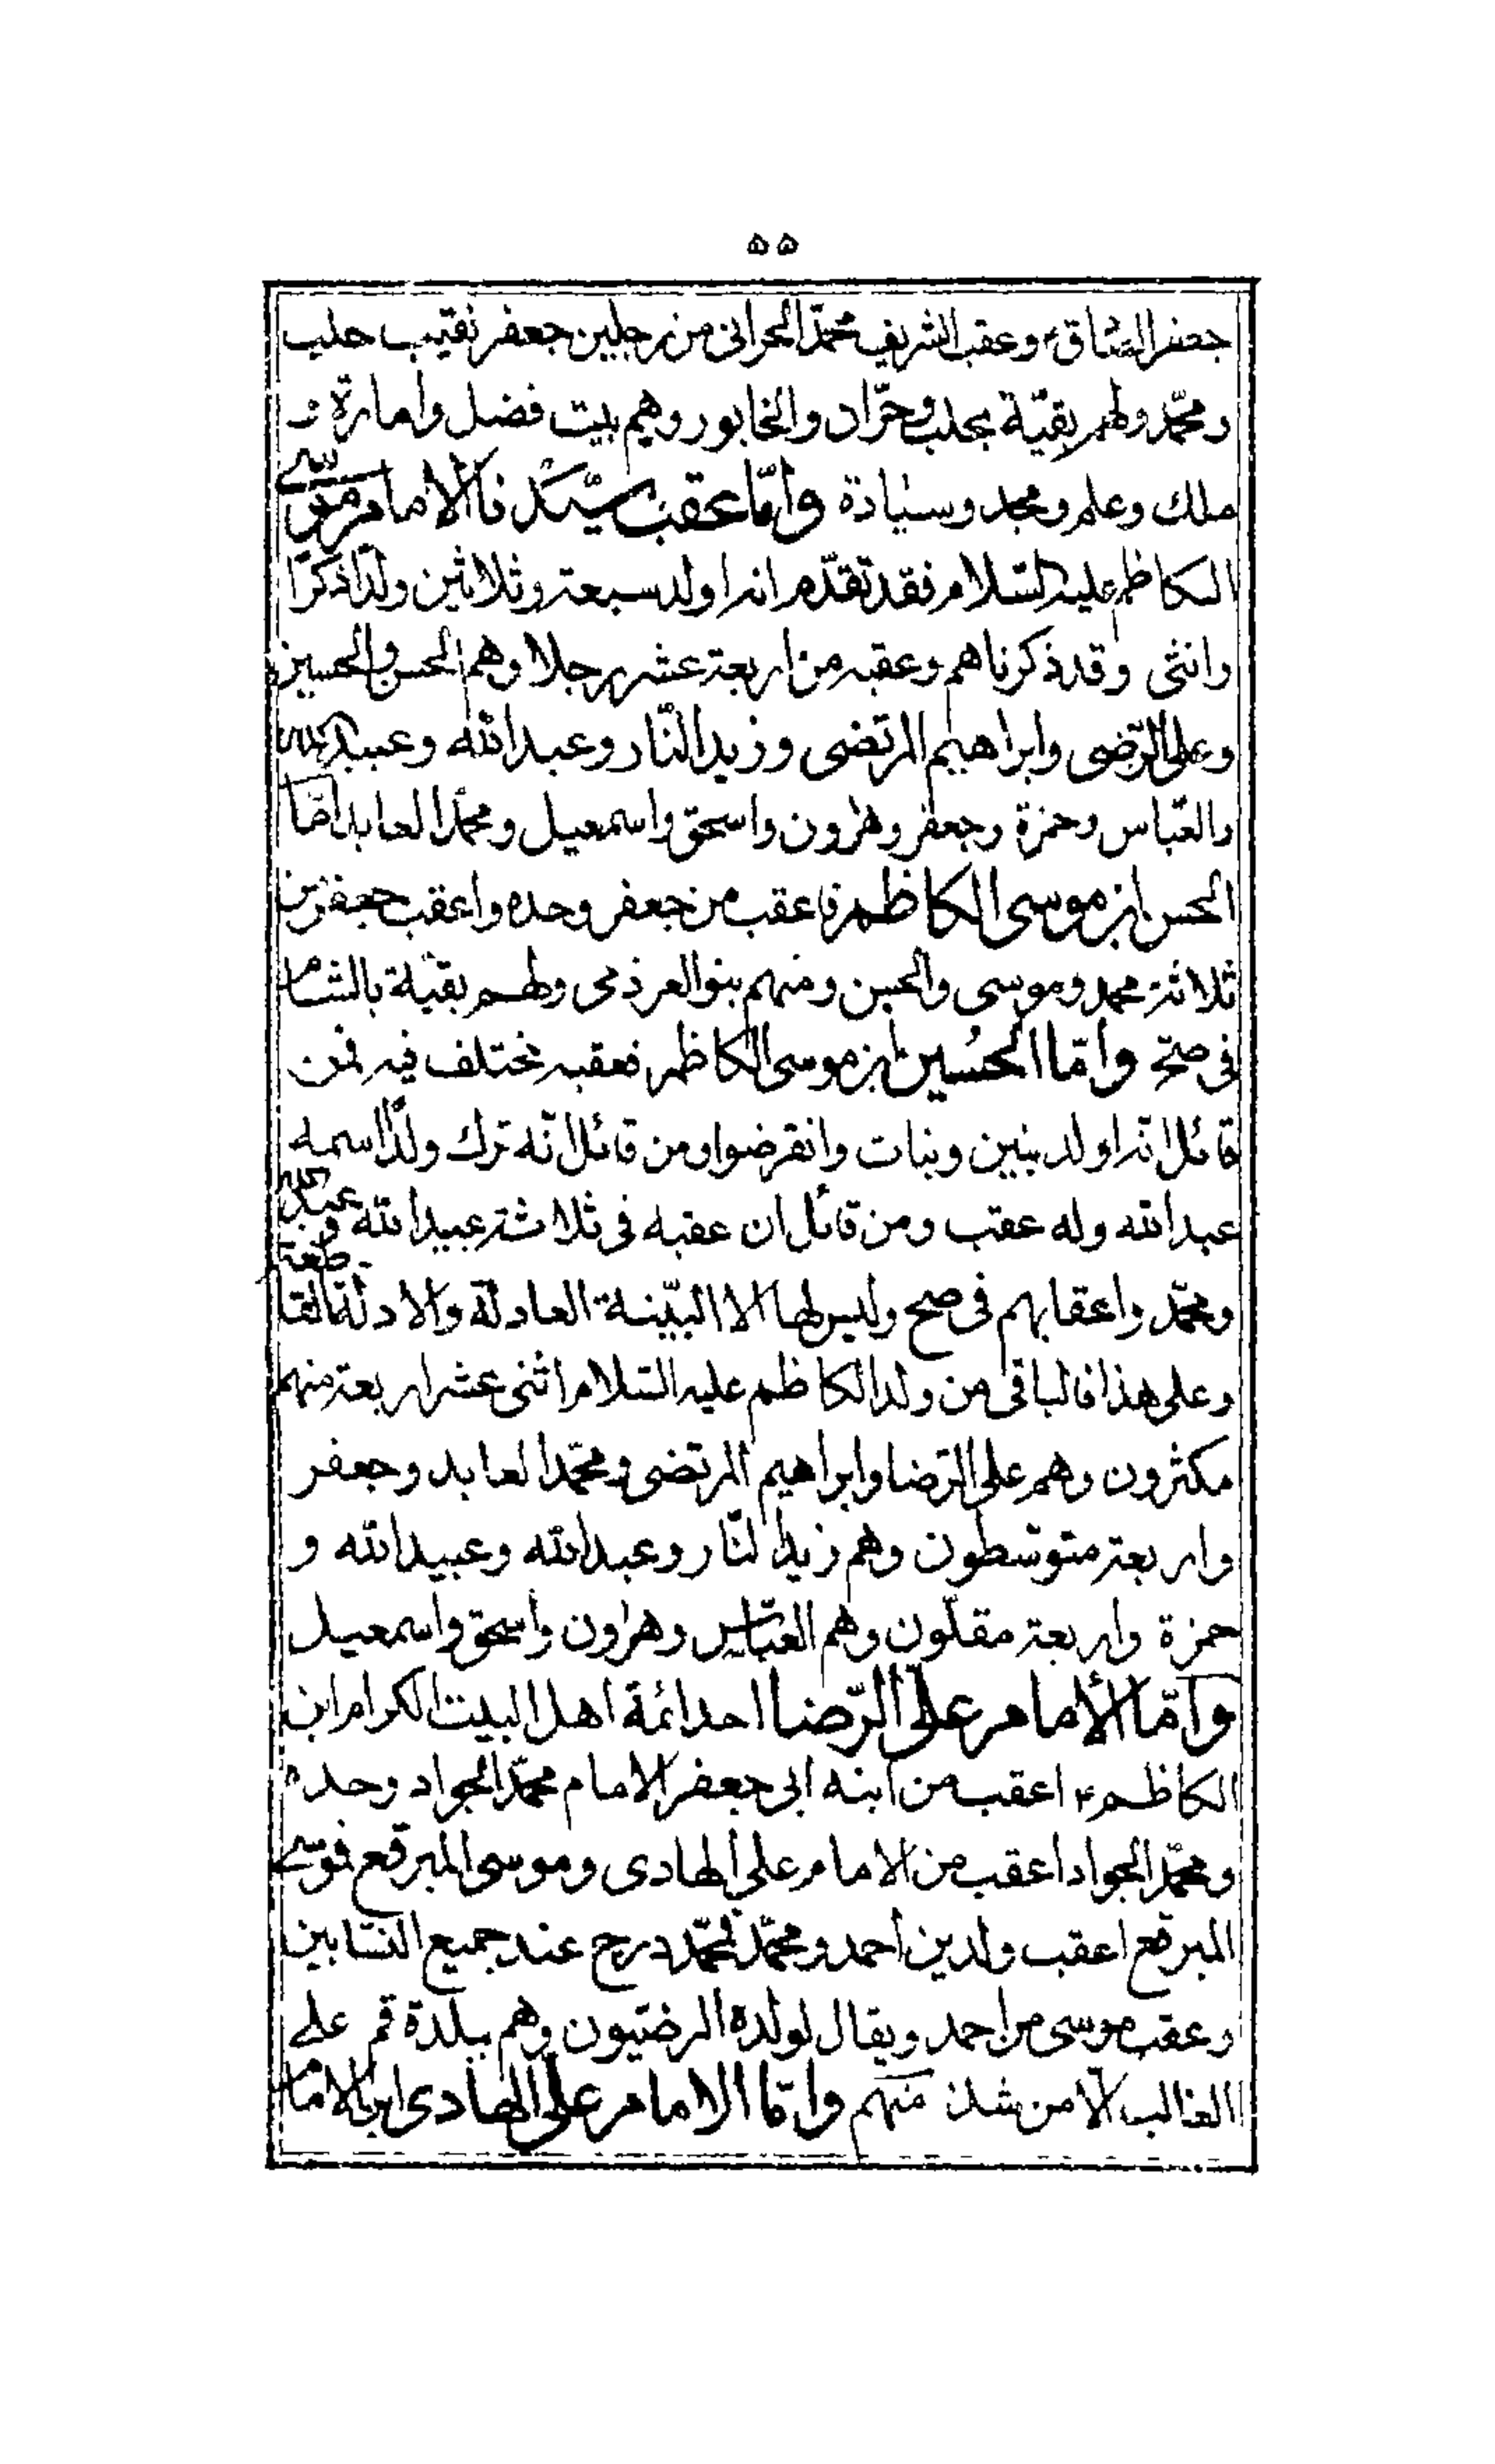 ۵۵
جعفر الصّادق ۴ وعقب الشريف محمّد الحرانى من رجلين جعفر نقيب حلب
ومحمّد ولهم بقيّة بحلب وحرّان والخابور وهم بيت فضل وامارة و
ملك وعلم ومجد وسيادة وامّا عقب سيّدنا الامام موسى
الكاظم عليه السّلام فقد تقدّم انه اولد سبعة وثلاثين ولدًا ذكرًا
وانثى وقد ذكرناهم وعقبه من اربعة عشر رجلا وهم الحسن والحسين
وعلى الرّضى وابراهيم المرتضى وزيد النّار وعبد الله وعبيد الله
والعّباس وحمزة وجعفر وهٰرون واسحق واسمعيل ومحمّد العابد امّا
الحسن ابن موسى الكاظم فاعقب من جعفر وحده واعقب جعفر من
ثلاثة محمد وموسى والحسن ومنهم بنو العرزمى ولهم بقيّة بالشام
فى صحّ وامّا الحُسين ابن موسى الكاظم فعقبه مختلف فيه فمن
قائل انّه اولد بنين وبنات وانقرضوا ومن قائل انّه ترك ولدًا اسمه
عبد الله وله عقب ومن قائل ان عقبه فى ثلاثة عبيد الله وعبد الله
ومحمّد واعقابهم فى صح وليس لها الا البيّنة العادلة والادلة القاطعة
وعلى هذا فالباقى من ولد الكاظم عليه السّلام اثنى عشر اربعة منهم
مكثرون وهم على الرّضا وابراهيم المرتضى ومحمّد العابد وجعفر
واربعة متوسّطون وهم زيد النّار وعبد الله وعبيد الله و
حمزة واربعة مقلّون وهم العبّاس وهٰرون واسحق واسمعيل
وامّا الأمام علىّ الرّضا احد ائمة اهل البيت الكرام ابن
الكاظم ۴ اعقب من ابنه ابى جعفر الامام محمّد الجواد وحده
ومحمّد الجواد اعقب من الامام على الهادى وموسى المبرقع فموسى
المبرقع اعقب ولدين احمد ومحمّد فمحمّد درج عند جميع النسّابين
وعقب موسى من احمد ويقال لولده الرضيّون وهم ببلدة قم على
الغالب الّا من شذ منهم وامّا الامام علىّ الهادى ابن الامام